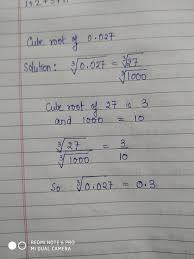 Cube root of 0.027
Solution: ∛0.027 = ∛27 / ∛1000
Cube root of 27 is 3
and 1000 = 10
∛27 / ∛1000 = 3 / 10
So ∛0.027 = 0.3
REDMI NOTE 6 PRO
MI DUAL CAMERA